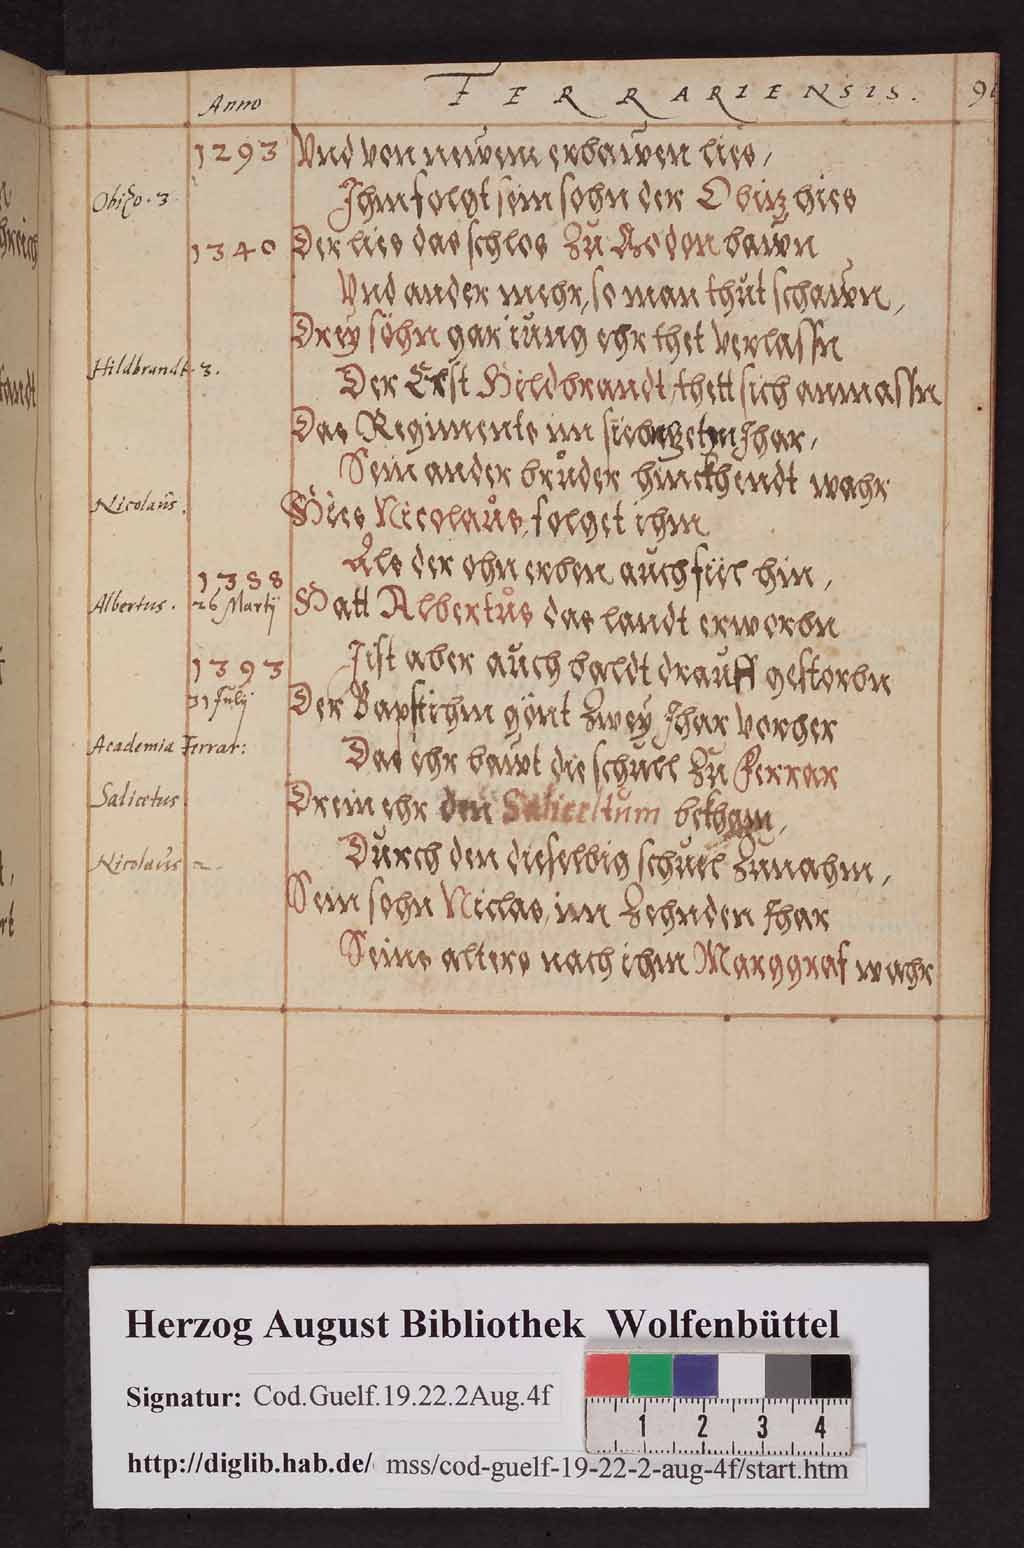 Anno FERRARIENSIS. 91
1293 Vnd von newem erbawen lies,
Obizo. 3. Ihm folgt sein sohn der Obitz hies
1340 Der lies das schlos Zu Rodon bawn
Vnd ander mehr, so man thut schawen,
Drey söhn gar iung ehr thet verlassn
Hildbrandt. 3. Der Erst Hildbrandt, thett sich anmassn
Das Regiments im siebnzetn Jhar,
Sein ander bruder hinckhendt wahr
Nicolaus. Hies Nicolaus, folget ihm
Als der ohn erben auch fiel hin,
1388
Albertus. 26 Martij Hatt Albertus das landt erworbn
1393 Jist aber auch baldt drauff gestorbn
31 Julij Der Bapst ihm gönt Zwey Jhar vorher
Academia Ferrar: Das ehr bawt die schull Zu Ferrar
Salicetus. Drein ehr den Salicettum bekham,
Nicolaus 2. Durch den dieselbig schuel Zunahm,
Sein sohn Niclas, im Zehnden Jhar
Seins alters nach ihm Marggraf wahr
Herzog August Bibliothek Wolfenbüttel
Signatur: Cod.Guelf.19.22.2Aug.4f
1 2 3 4
http://diglib.hab.de/ mss/cod-guelf-19-22-2-aug-4f/start.htm